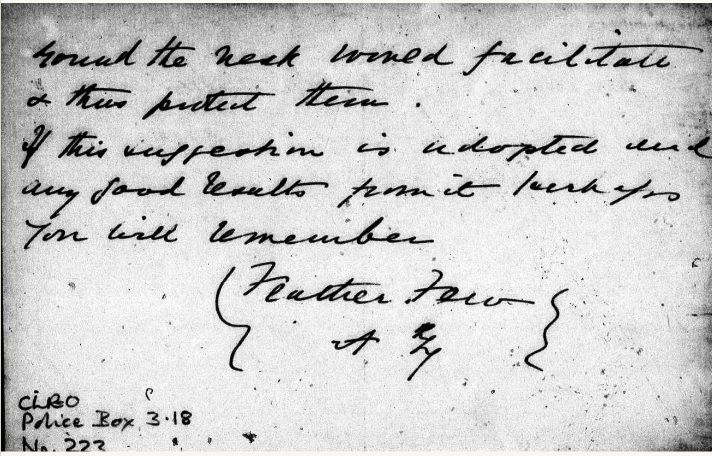 round the neck would facilitate
& thus protect them.
If this suggestion is adopted and
any good results from it perhaps
you will remember
Feather Few
A
CLRO
Police Box 3.18
No. 223